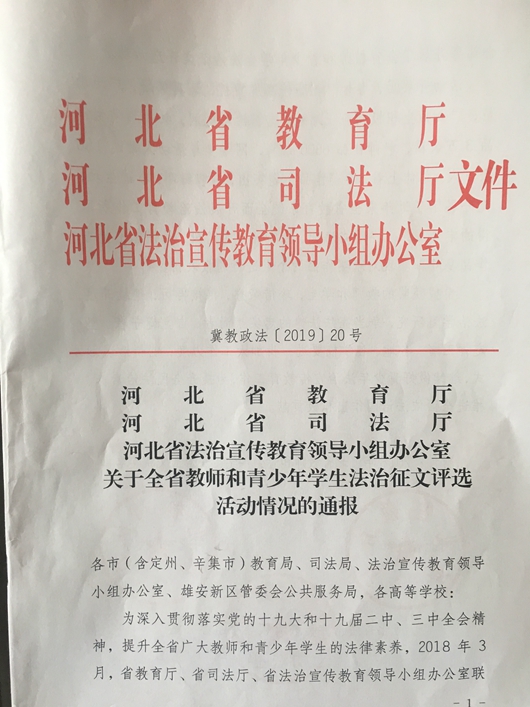 河北省教育厅
河北省司法厅文件
河北省法治宣传教育领导小组办公室
冀教政法〔2019〕20号
河北省教育厅
河北省司法厅
河北省法治宣传教育领导小组办公室
关于全省教师和青少年学生法治征文评选
活动情况的通报
各市（含定州、辛集市）教育局、司法局、法治宣传教育领导
小组办公室、雄安新区管委会公共服务局，各高等学校：
为深入贯彻落实党的十九大和十九届二中、三中全会精
神，提升全省广大教师和青少年学生的法律素养，2018 年 3
月，省教育厅、省司法厅、省法治宣传教育领导小组办公室联
- 1 -